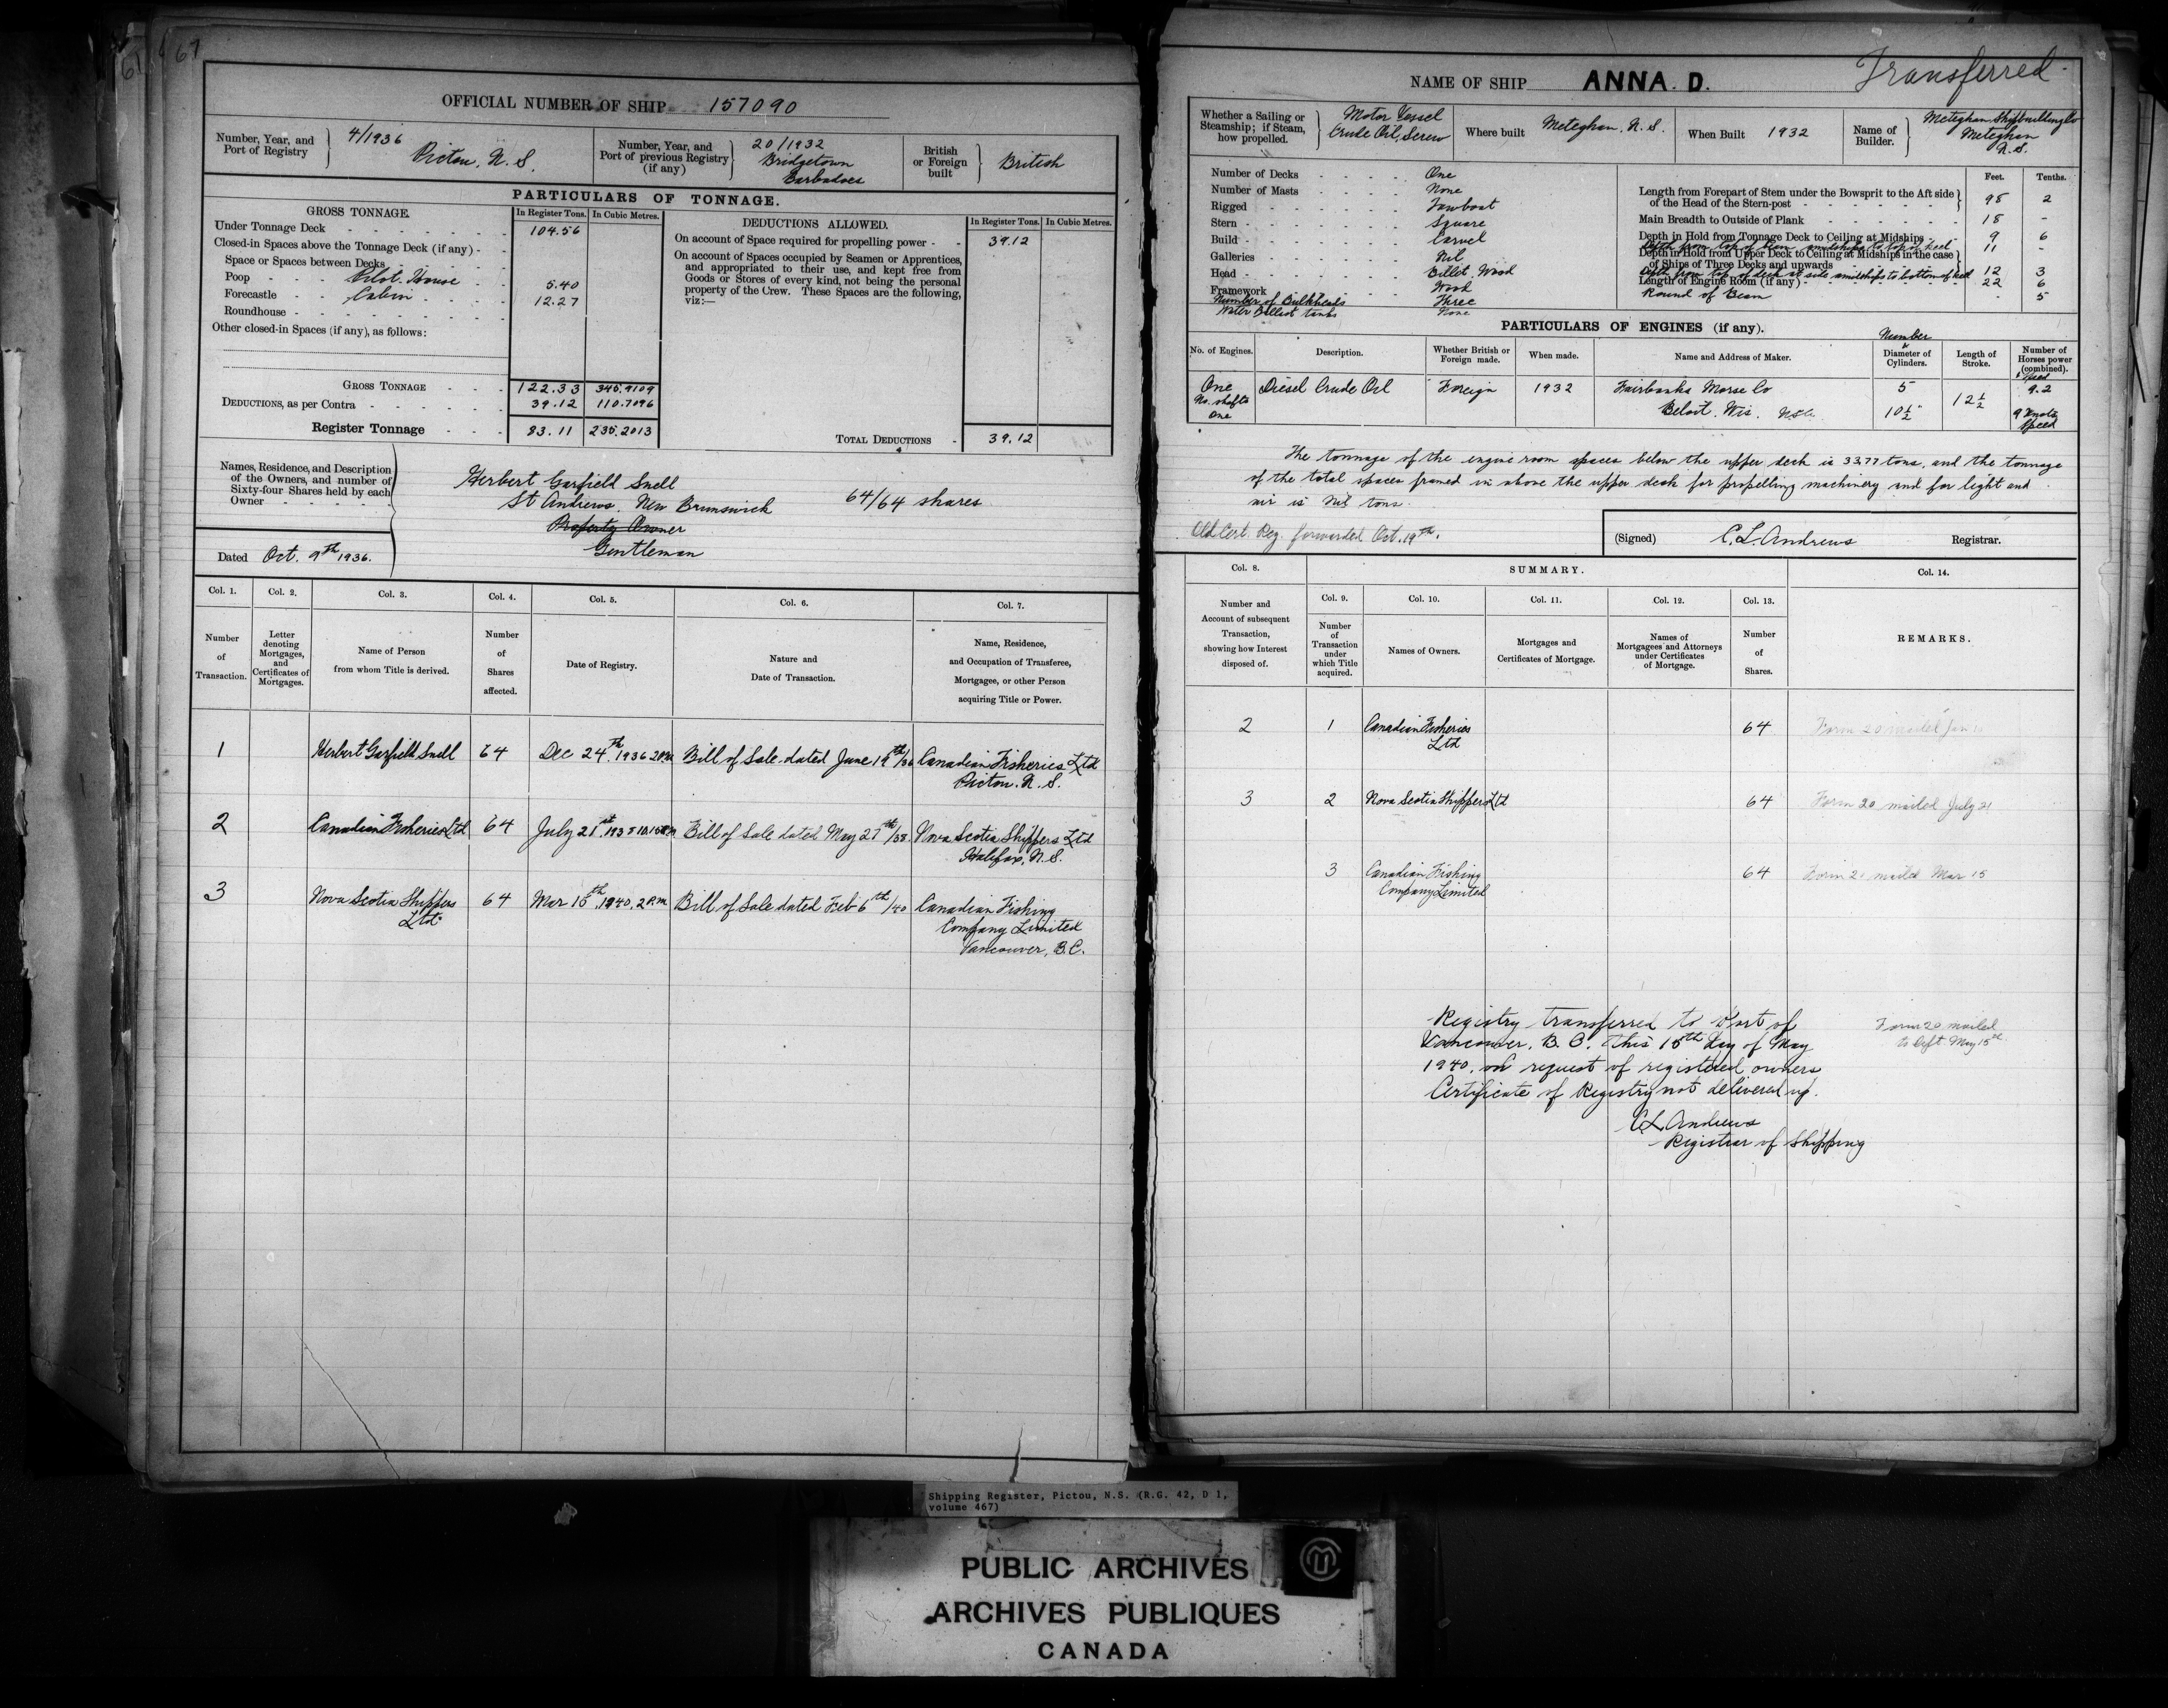 67
OFFICIAL NUMBER OF SHIP 157090
Number, Year, and Port of Registry
4/1936
Pictou, N.S.
Number, Year, and Port of previous Registry (if any)
20/1932
Bridgetown
Barbadoes
British or Foreign built
British
PARTICULARS OF TONNAGE.
GROSS TONNAGE.
In Register Tons.
In Cubic Metres.
Under Tonnage Deck 104.56
Closed-in Spaces above the Tonnage Deck (if any)
Space or Spaces between Decks
Poop Pilot House 5.40
Forecastle Cabin 12.27
Roundhouse
Other closed-in Spaces (if any), as follows:
GROSS TONNAGE 122.33 345.9109
DEDUCTIONS, as per Contra 39.12 110.7096
Register Tonnage 83.11 235.2013
DEDUCTIONS ALLOWED.
In Register Tons.
In Cubic Metres.
On account of Space required for propelling power 39.12
On account of Spaces occupied by Seamen or Apprentices,
and appropriated to their use, and kept free from
Goods or Stores of every kind, not being the personal
property of the Crew. These Spaces are the following,
viz:—
TOTAL DEDUCTIONS 39.12
Names, Residence, and Description
of the Owners, and number of
Sixty-four Shares held by each
Owner
Herbert Garfield Snell
St Andrews, New Brunswick 64/64 shares
Property Owner
Gentleman
Dated Oct. 9th 1936.
Col. 1.
Number of Transaction.
Col. 2.
Letter denoting Mortgages, and Certificates of Mortgages.
Col. 3.
Name of Person from whom Title is derived.
Col. 4.
Number of Shares affected.
Col. 5.
Date of Registry.
Col. 6.
Nature and Date of Transaction.
Col. 7.
Name, Residence, and Occupation of Transferee, Mortgagee, or other Person acquiring Title or Power.
1 Herbert Garfield Snell 64 Dec 24th 1936 2 P.M. Bill of Sale dated June 19th/36 Canadian Fisheries Ltd
Pictou. N.S.
2 Canadian Fisheries Ltd 64 July 21st 1938 Bill of Sale dated May 27th/38 Nova Scotia Shippers Ltd
Halifax, N.S.
3 Nova Scotia Shippers Ltd 64 Mar 15th, 1940, 2 P.M. Bill of Sale dated Feb 6th/40 Canadian Fishing
Company Limited
Vancouver, B.C.
NAME OF SHIP ANNA. D.
Transferred
Whether a Sailing or Steamship; if Steam, how propelled.
Motor Vessel
Crude Oil, Screw
Where built
Meteghan, N.S.
When Built 1932
Name of Builder.
Meteghan Shipbuilding Co
Meteghan
N.S.
Number of Decks One
Number of Masts None
Rigged Towboat
Stern Square
Build Carvel
Galleries Nil
Head Billet, Wood
Framework Wood
Number of Bulkheads Three
Water Ballast tanks None
Feet.
Tenths.
Length from Forepart of Stem under the Bowsprit to the Aft side of the Head of the Stern-post 98 2
Main Breadth to Outside of Plank 18 -
Depth in Hold from Tonnage Deck to Ceiling at Midships 9 6
Depth from top of beam amidships to top of keel 11 -
Depth in Hold from Upper Deck to Ceiling at Midships in the case of Ships of Three Decks and upwards
Depth from top of deck at side amidships to bottom of keel 12 3
Length of Engine Room (if any) 22 6
Round of Beam 5
PARTICULARS OF ENGINES (if any).
No. of Engines.
Description.
Whether British or Foreign made.
When made.
Name and Address of Maker.
Number & Diameter of Cylinders.
Length of Stroke.
Number of Horses power (combined). Speed
One
No. shafts
One
Diesel Crude Oil
Foreign
1932
Fairbanks Morse Co
Beloit. Wis. USA.
5
10½"
12½
9.2
9 Knots
Speed
The tonnage of the engine room spaces below the upper deck is 33.77 tons, and the tonnage
of the total spaces framed in above the upper deck for propelling machinery and for light and
air is Nil tons.
Old Cert. Reg. forwarded Oct. 19th.
(Signed) C. L. Andrews Registrar.
Col. 8.
Number and Account of subsequent Transaction, showing how Interest disposed of.
SUMMARY.
Col. 9.
Number of Transaction under which Title acquired.
Col. 10.
Names of Owners.
Col. 11.
Mortgages and Certificates of Mortgage.
Col. 12.
Names of Mortgagees and Attorneys under Certificates of Mortgage.
Col. 13.
Number of Shares.
Col. 14.
REMARKS.
2 1 Canadian Fisheries Ltd 64 Form 20 mailed Jan
3 2 Nova Scotia Shippers Ltd 64 Form 20 mailed July 21
3 Canadian Fishing Company Limited 64 Form 20 mailed Mar 15
Registry transferred to Port of
Vancouver, B.C. This 15th day of May
1940, on request of registered owners
Certificate of Registry not delivered up.
C L Andrews
Registrar of Shipping
Form 20 mailed
to Dept. May 15th.
Shipping Register, Pictou, N.S. (R.G. 42, D 1,
volume 467)
PUBLIC ARCHIVES
ARCHIVES PUBLIQUES
CANADA